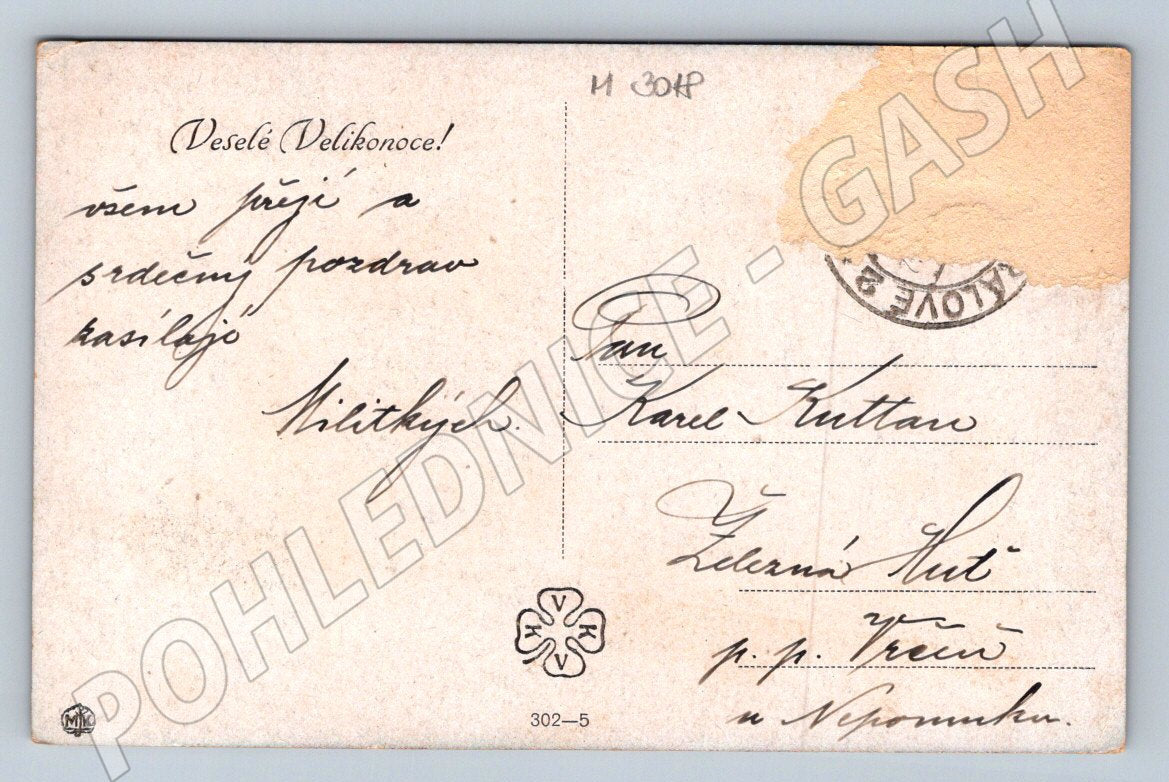 M 3018
Veselé Velikonoce!
všem přejí a
srdečný pozdrav
zasílají
Militkých.
Pan
Karel Kuttan
Železná Huť
p. p. Vrčeň
u Nepomuku.
ÁLOVÉ
V
K K
V
MK
302—5
POHLEDNICE - GASH